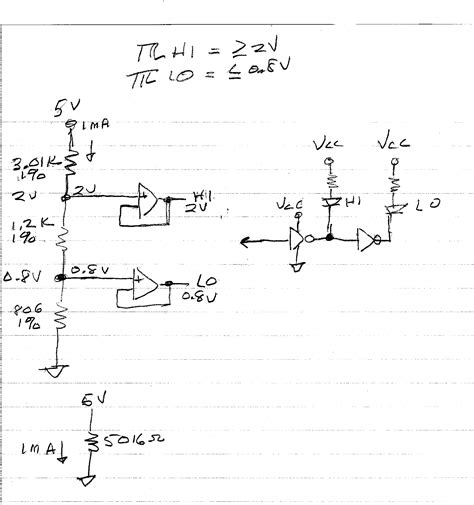 TTL HI = ≥ 2V
TTL LO = ≤ 0.8V
5V
1mA
3.01K
1%
2V
2V
HI
2V
1.2K
1%
0.8V
0.8V
LO
0.8V
806
1%
5V
1mA
5016Ω
VCC
VCC
VCC
HI
LO